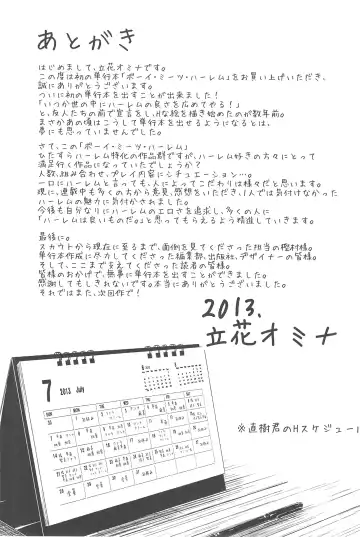 あとがき
はじめまして、立花オミナです。
この度は初の単行本「ボーイ・ミーツ・ハーレム」をお買い上げいただき、
誠にありがとうございます。
ついに初の単行本を出すことが出来ました!
「いつか世の中にハーレムの良さを広めてやる!」
と、友人たちの前で宣言をし、Hな絵を描き始めたのが数年前。
まさかあの頃はこうして単行本を出せるようになるとは、
夢にも思っていませんでした。
さて、この「ボーイ・ミーツ・ハーレム」
ひたすらハーレム特化の作品群ですが、ハーレム好きの方々にとって
満足行く作品になっていたでしょうか?
人数、組み合わせ、プレイ内容にシチュエーション…
一口にハーレムと言っても、人によってこだわりは様々だと思います。
現に、連載中も多くの方から意見、感想をいただき、1人では気付けなかった
ハーレムの魅力に気付かされました。
今後も自分なりにハーレムのエロさを追求し、多くの人に
「ハーレムは良いものだ。」と思ってもらえるよう精進していきます。
最後に。
スカウトから現在に至るまで、面倒を見てくださった担当の樫村様。
単行本作成に尽力してくださった編集部、出版社、デザイナーの皆様。
そして、ここまで支えてくださった読者の皆様。
皆様のおかげで、無事に単行本を出すことができました。
感謝してもしきれないです。本当にありがとうございました。
それではまた、次回作で!
2013.
立花オミナ
7 2013 July
※直樹君のHスケジュール